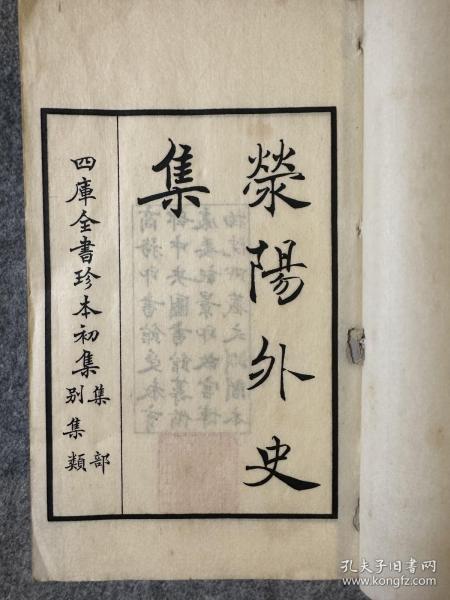 滎陽外史
集
四庫全書珍本初集
集部
別集類
孔夫子旧书网
www.kongfz.com